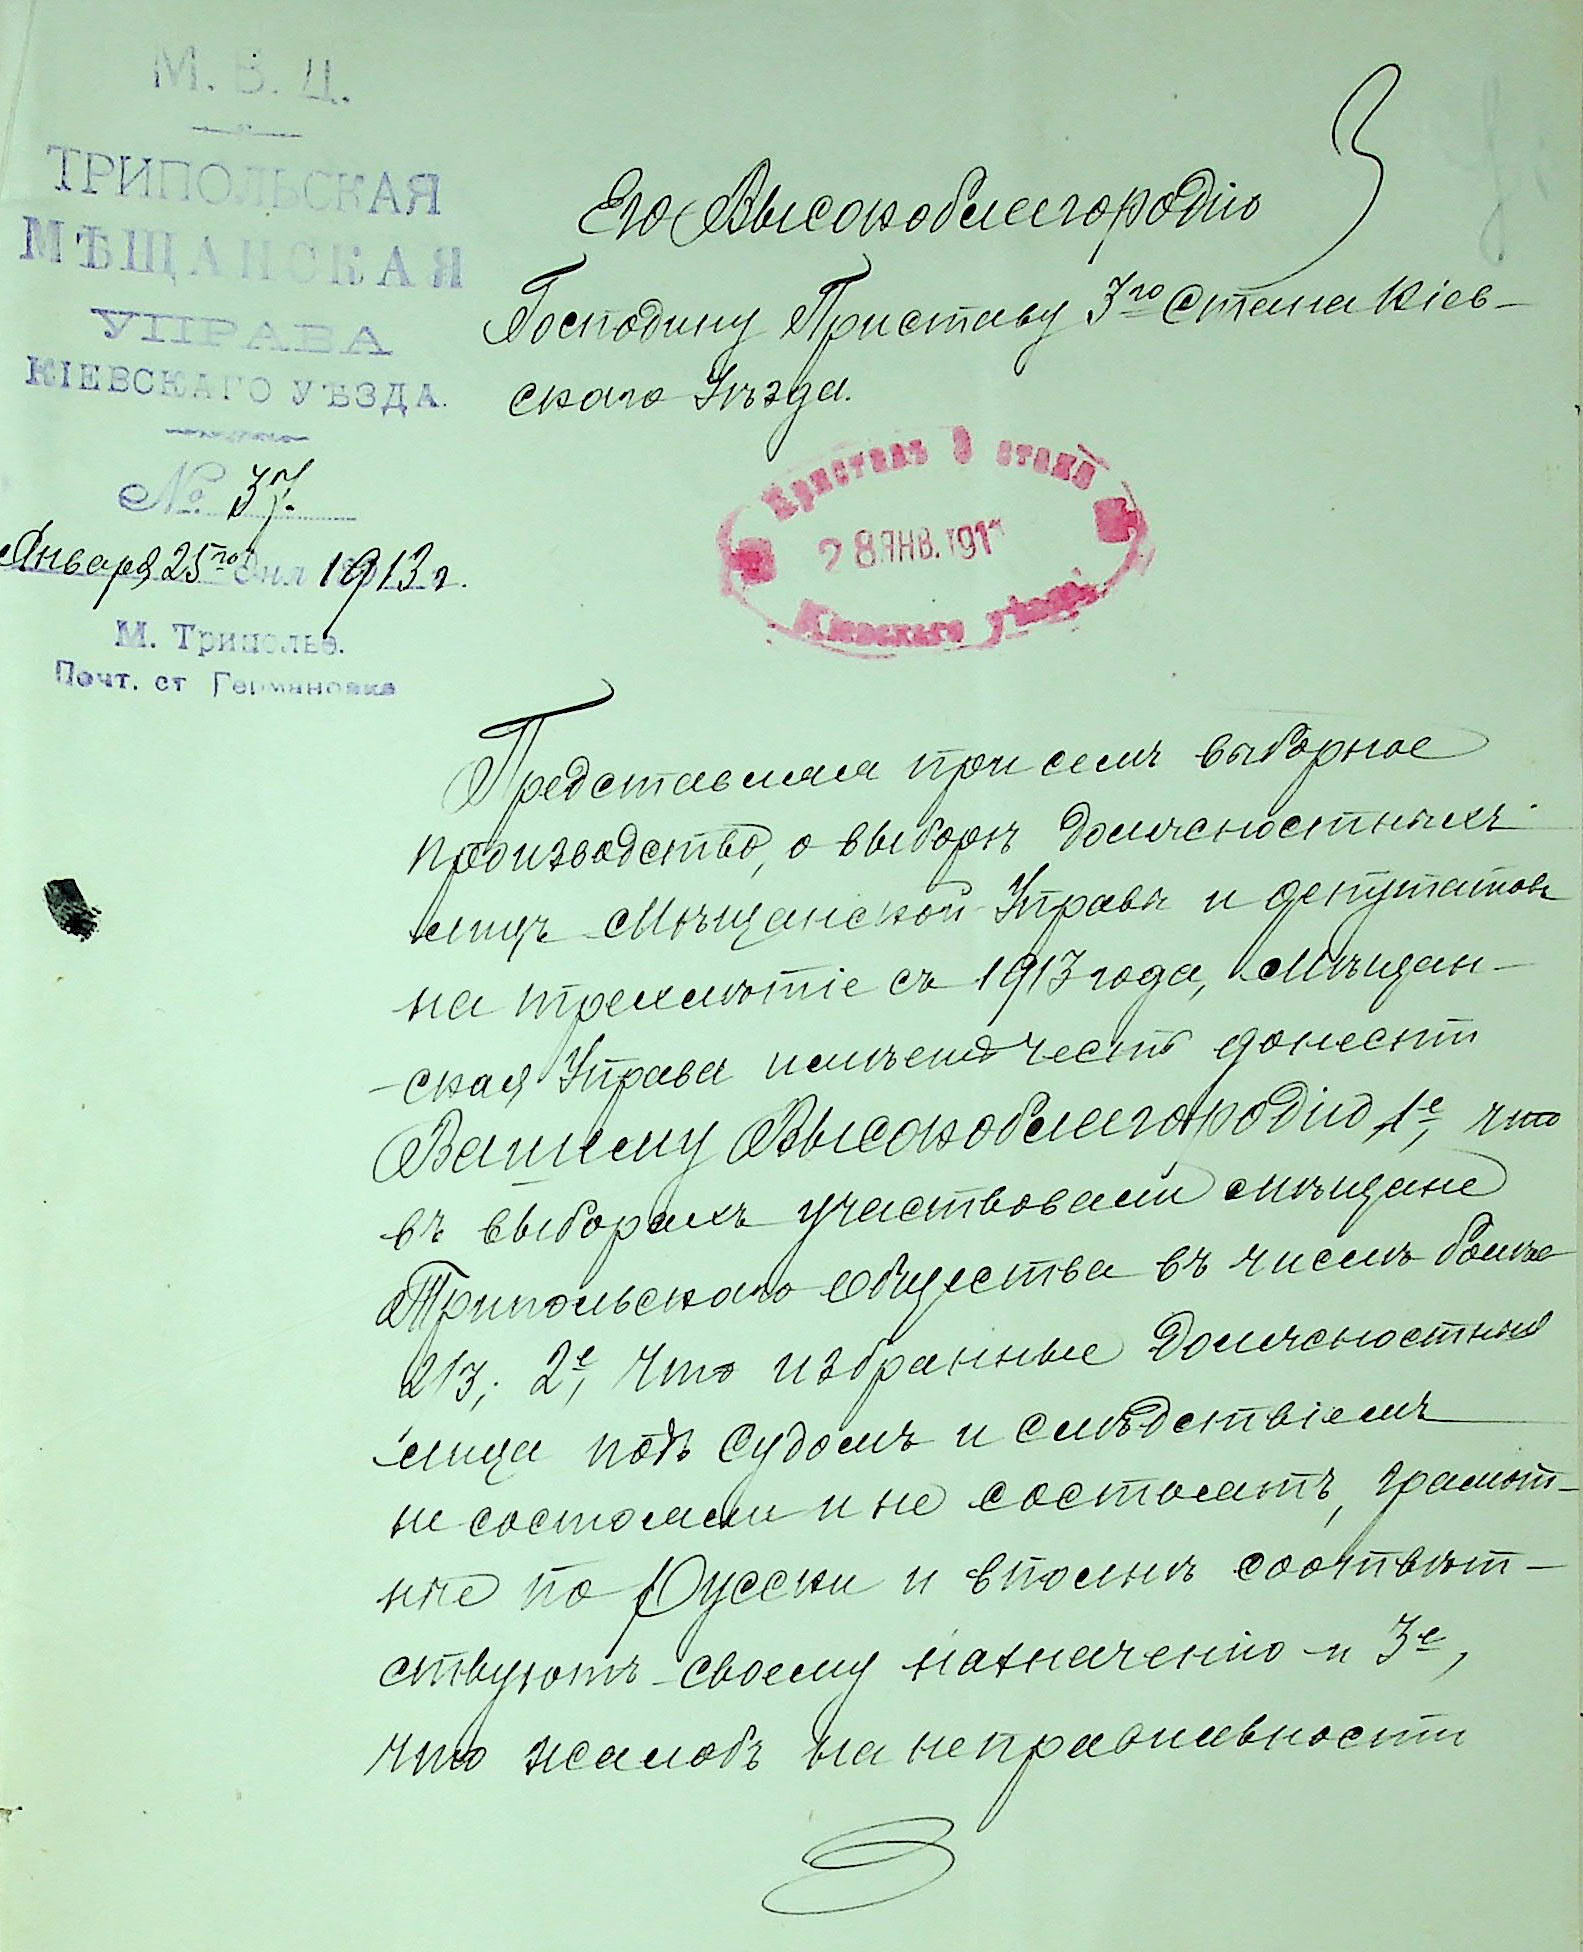 М. В. Д.
ТРИПОЛЬСКАЯ
МѢЩАНСКАЯ
УПРАВА
КІЕВСКАГО УѢЗДА.
№ 37.
Января 25го дня 1913 г.
М. Триполье.
Почт. ст Германовка
Его Высокоблагородію
Господину Приставу 3го Стана Кіев-
скаго Уѣзда.
Приставъ 3 стана
28 ЯНВ. 191
Кіевскаго уѣзда
Представляя при семъ выборное
производство, о выборѣ должностныхъ
лицъ Мѣщанской Управы и депутатовъ
на трехлѣтіе съ 1913 года, Мѣщан-
-ская Управа имѣетъ честь донести
Вашему Высокоблагородію, 1е, что
въ выборахъ участвовали мѣщане
Трипольскаго Общества въ числѣ болѣе
2/3; 2е, что избранные должностныя
лица подъ судомъ и слѣдствіемъ
не состояли и не состоятъ, грамот-
ные по Русски и вполнѣ соотвѣт-
ствуютъ своему назначенію и 3е,
что жалобъ на неправильности